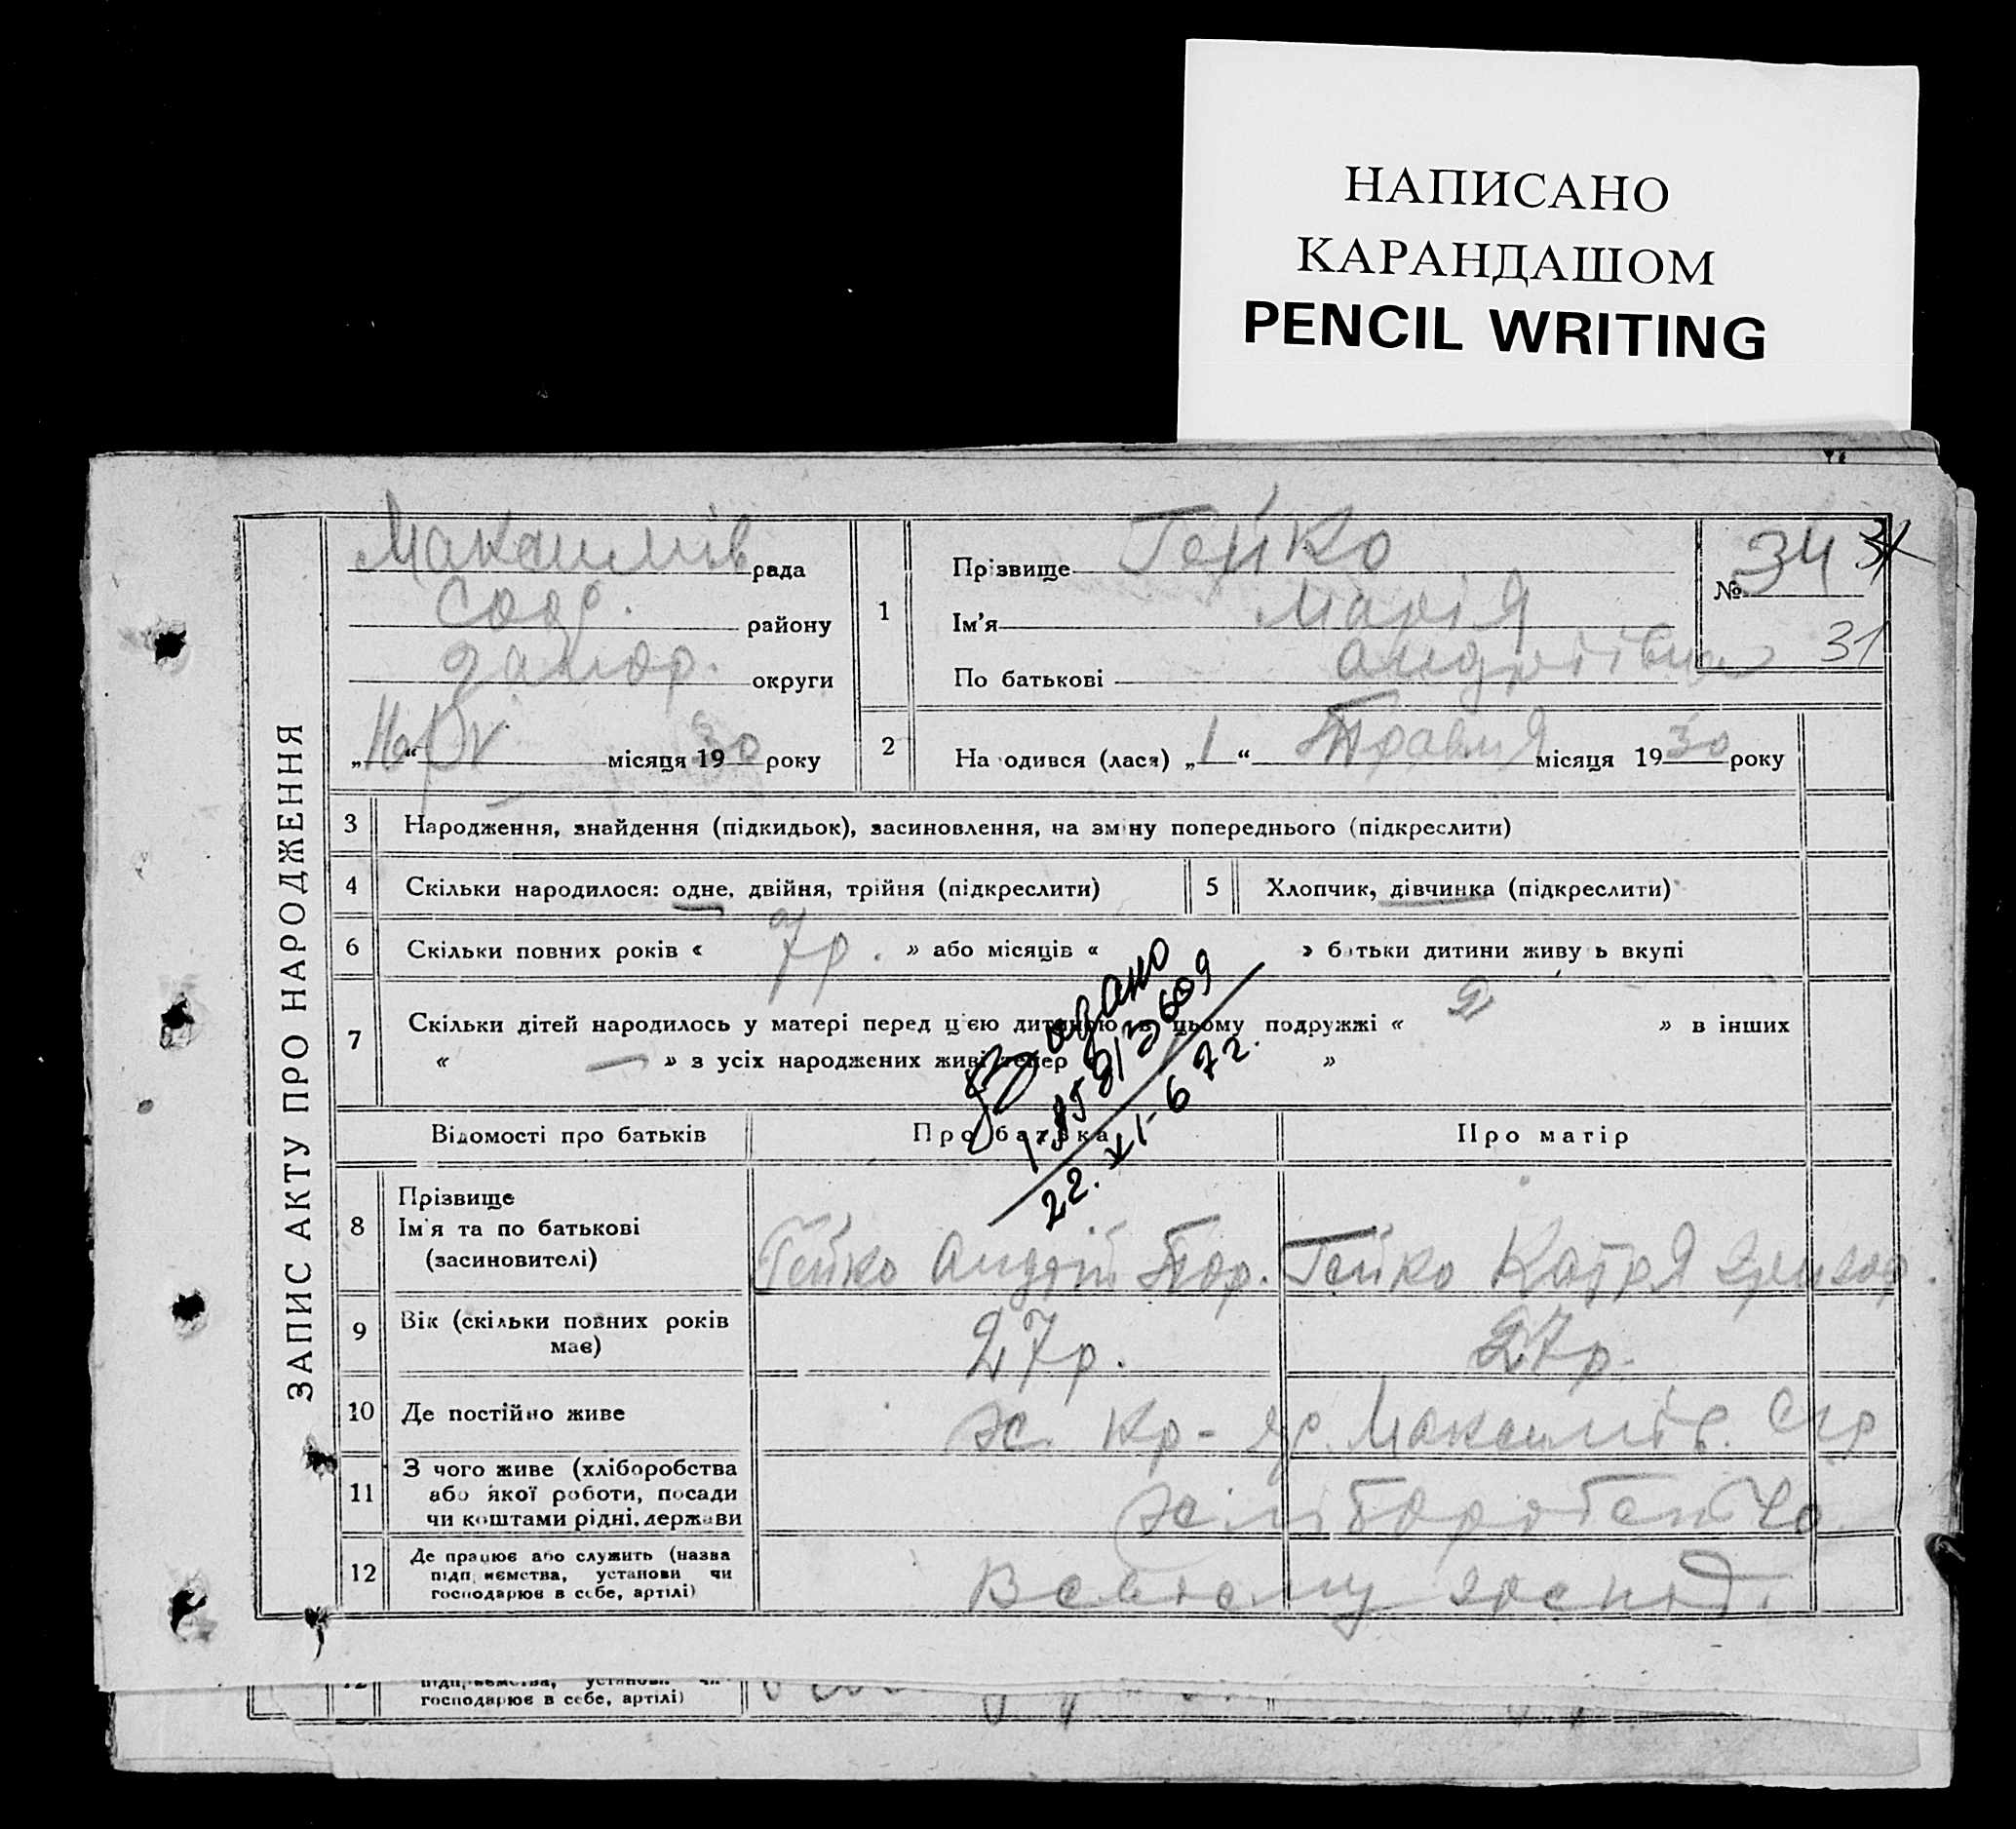 НАПИСАНО
КАРАНДАШОМ
PENCIL WRITING
ЗАПИС АКТУ ПРО НАРОДЖЕННЯ
Максимів рада
району
запор. округи
„ “ місяця 1930 року
1
Прізвище Гейко
Ім'я Марія
По батькові Андріівна
№ 34
31
2 На одився (лася) „1“ Травня місяця 1930 року
3 Народження, знайдення (підкидьок), засиновлення, на зміну попереднього (підкреслити)
4 Скільки народилося: одне, двійня, трійня (підкреслити)
5 Хлопчик, дівчинка (підкреслити)
6 Скільки повних років « 7р. » або місяців « » батьки дитини живу ь вкупі
7 Скільки дітей народилось у матері перед цією дитиною в цьому подружжі « 2 » в інших
« — » з усіх народжених живі тепер »
Видано
22. XI-6 72.
Відомості про батьків Про батька Про матір
8 Прізвище
Ім'я та по батькові
(засиновителі)
Гейко Андрій Гейко Катря
9 Вік (скільки повних років
має)
27р. 27р.
10 Де постійно живе
Максимів.
11 З чого живе (хліборобства
або якої роботи, посади
чи коштами рідні, держави
12 Де працює або служить (назва
підп иємства, установи чи
господарює в себе, артілі)
господарює в себе, артілі)